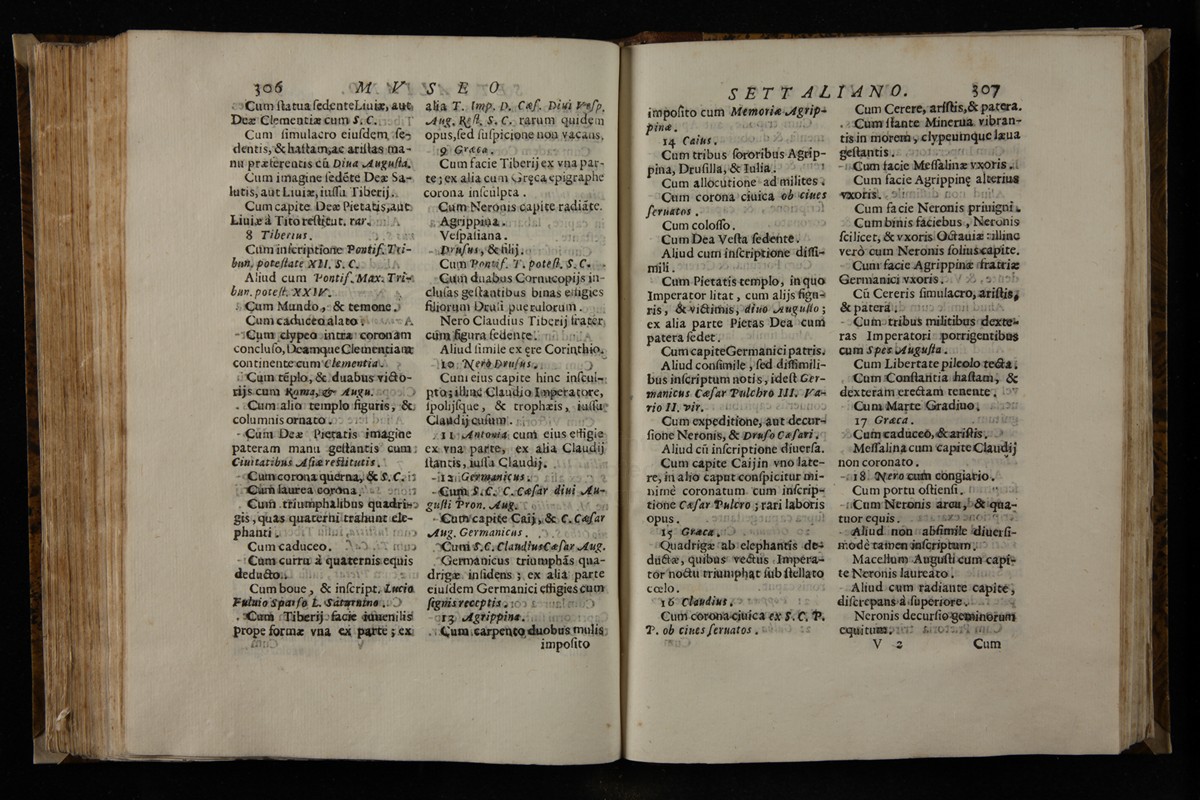 306 MVSEO
Cum ſtatua ſedente Liuiæ, aut
Deæ Clementiæ cum S. C.
Cum ſimulacro eiuſdem ſe-
dentis, & haſtam, ac ariſtas ma-
nu præferentis cũ Diua Auguſta.
Cum imagine ſedẽte Deæ Sa-
lutis, aut Liuiæ, iuſſu Tiberij.
Cum capite Deæ Pietatis, aut
Liuiæ à Tito reſtitut. rar.
8 Tiberius.
Cum inſcriptione Pontif. Tri-
bun. poteſtate XII. S. C.
Aliud cum Pontif. Max. Tri-
bun. poteſt. XXIV.
Cum Mundo, & temone.
Cum caduceo alato.
Cum clypeo intra coronam
concluſo, Deamque Clementiam
continente cum Clementia.
Cum tẽplo, & duabus victo-
rijs cum Roma, & Augu.
Cum alio templo figuris, &
columnis ornato.
Cum Deæ Pietatis imagine
pateram manu geſtantis cum
Ciuitatibus Aſiæ reſtitutis.
Cum corona querna, & S. C.
Cum laurea corona.
Cum triumphalibus quadri-
gis, quas quaterni trahunt ele-
phanti.
Cum caduceo.
Cum curru à quaternis equis
deducto.
Cum boue, & inſcript. Lucio
Fuluio Sparſo L. Saturnino.
Cum Tiberij facie iuuenilis
prope formæ vna ex parte; ex
alia T. Imp. D. Cæſ. Diui Veſp.
Aug. Reſt. S. C. rarum quidem
opus, ſed ſuſpicione non vacans.
9 Græca.
Cum facie Tiberij ex vna par-
te; ex alia cum Gręca epigraphe
corona inſculpta.
Cum Neronis capite radiãte.
Agrippina.
Veſpaſiana.
Druſus, & filij.
Cum Pontif. T. poteſt. S. C.
Cum duabus Cornucopijs in-
cluſas geſtantibus binas effigies
filiorum Druſi puerulorum.
Nero Claudius Tiberij frater
cũm figura ſedente.
Aliud ſimile ex ęre Corinthio.
10 Nero Druſus.
Cum eius capite hinc inſcul-
pto; illinc Claudio Imperatore,
ſpolijſque, & trophæis, iuſſu
Claudij cuſum.
11 Antonia cum eius effigie
ex vna parte, ex alia Claudij
ſtantis, iuſſa Claudij.
12 Germanicus.
Cum S. C. C. Cæſar diui Au-
guſti Pron. Aug.
Cum capite Caij, & C. Cæſar
Aug. Germanicus.
Cum S. C. Claudius Cæſar Aug.
Germanicus triumphãs qua-
drigæ inſidens; ex alia parte
eiuſdem Germanici effigies cum
ſignis receptis.
13 Agrippina.
Cum carpento duobus mulis
impoſito
SETTALIANO. 307
impoſito cum Memoriæ Agrip-
pinæ.
14 Caius.
Cum tribus ſororibus Agrip-
pina, Druſilla, & Iulia.
Cum allocutione ad milites.
Cum corona ciuica ob ciues
ſeruatos.
Cum coloſſo.
Cum Dea Veſta ſedente.
Aliud cum inſcriptione diſſi-
mili.
Cum Pietatis templo, in quo
Imperator litat, cum alijs figu-
ris, & victimis, diuo Auguſto;
ex alia parte Pietas Dea cum
patera ſedet.
Cum capite Germanici patris.
Aliud conſimile, ſed diſſimili-
bus inſcriptum notis, ideſt Ger-
manicus Cæſar Pulchro III. Va-
rio II. vir.
Cum expeditione, aut decur-
ſione Neronis, & Druſo Cæſari.
Aliud cũ inſcriptione diuerſa.
Cum capite Caij in vno late-
re, in alio caput conſpicitur mi-
nimè coronatum cum inſcrip-
tione Cæſar Pulcro; rari laboris
opus.
15 Græca.
Quadrigæ ab elephantis de-
ductæ, quibus vectus Impera-
tor noctu triumphat ſub ſtellato
cœlo.
16 Claudius.
Cum corona ciuica ex S. C. P.
P. ob ciues ſeruatos.
Cum Cerere, ariſtis, & patera.
Cum ſtante Minerua vibran-
tis in morem, clypeumque læua
geſtantis.
Cum facie Meſſalinæ vxoris.
Cum facie Agrippinę alterius
vxoris.
Cum facie Neronis priuigni.
Cum binis faciebus, Neronis
ſcilicet, & vxoris Octauiæ: illinc
verò cum Neronis ſolius capite.
Cum facie Agrippinæ fratriæ
Germanici vxoris.
Cũ Cereris ſimulacro, ariſtis,
& patera.
Cum tribus militibus dexte-
ras Imperatori porrigentibus
cum Spes Auguſta.
Cum Libertate pileolo tecta.
Cum Conſtantia haſtam, &
dexteram erectam tenente.
Cum Marte Gradiuo.
17 Græca.
Cum caduceo, & ariſtis.
Meſſalina cum capite Claudij
non coronato.
18 Nero cum congiario.
Cum portu oſtienſi.
Cum Neronis arcu, & qua-
tuor equis.
Aliud non abſimile diuerſi-
modè tamen inſcriptum.
Macellum Auguſti cum capi-
te Neronis laureato.
Aliud cum radiante capite,
diſcrepans à ſuperiore.
Neronis decurſio geminorum
equitum.
V 2 Cum